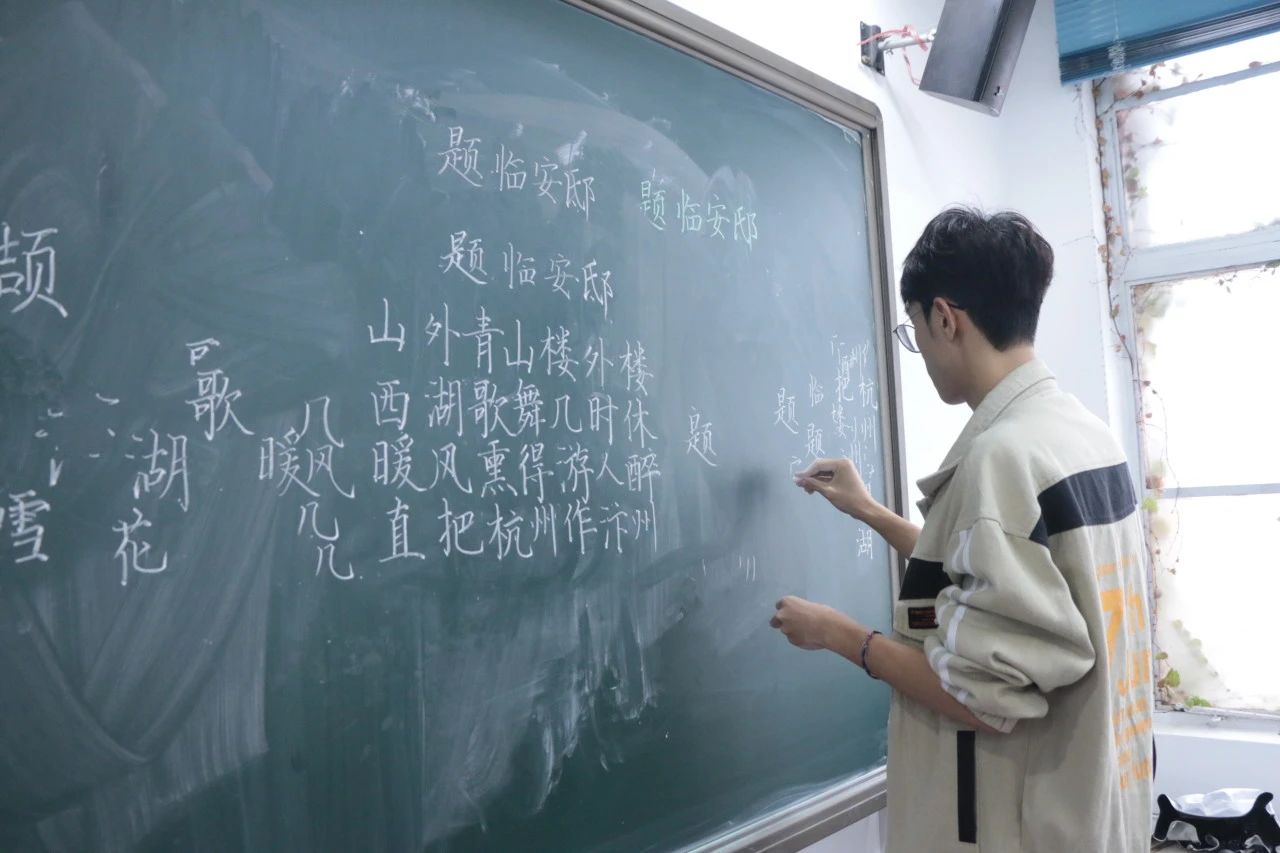 题临安邸
题临安邸
题临安邸
山外青山楼外楼
西湖歌舞几时休
暖风熏得游人醉
直把杭州作汴州
颉
歌
湖
雪
花
几
暖风
几
几
题
题
临
题
把
楼
杭
州
湖